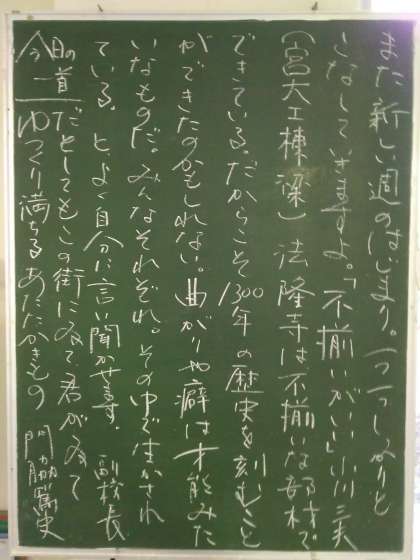 また新しい週のはじまり。一つ一つしっかりと
こなしていきますよ。「不揃いがいい」小川三夫
（宮大工棟梁）法隆寺は不揃いな部材で
できている。だからこそ1300年の歴史を刻むこと
ができたのかもしれない。曲がりや癖は才能みた
いなものだ。みんなそれぞれ。その中で生かされ
ている。と、よく自分に言い聞かせます。 副校長
今日の一首
だとしてもこの街にゐて君がゐて
ゆつくり満ちるあたたかきもの 門脇篤史